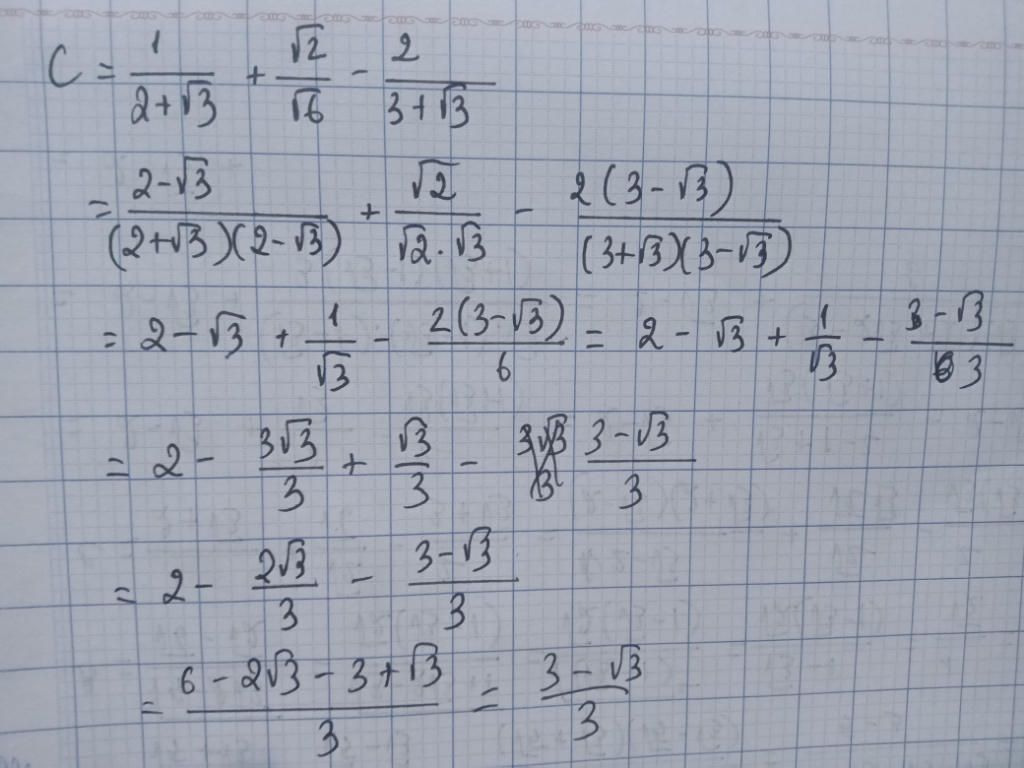 C = 1/(2+√3) + √2/√6 - 2/(3+√3)
= (2-√3)/((2+√3)(2-√3)) + √2/(√2.√3) - 2(3-√3)/((3+√3)(3-√3))
= 2-√3 + 1/√3 - 2(3-√3)/6 = 2 - √3 + 1/√3 - (3-√3)/3
= 2 - 3√3/3 + √3/3 - (3-√3)/3
= 2 - 2√3/3 - (3-√3)/3
= (6-2√3-3+√3)/3 = (3-√3)/3